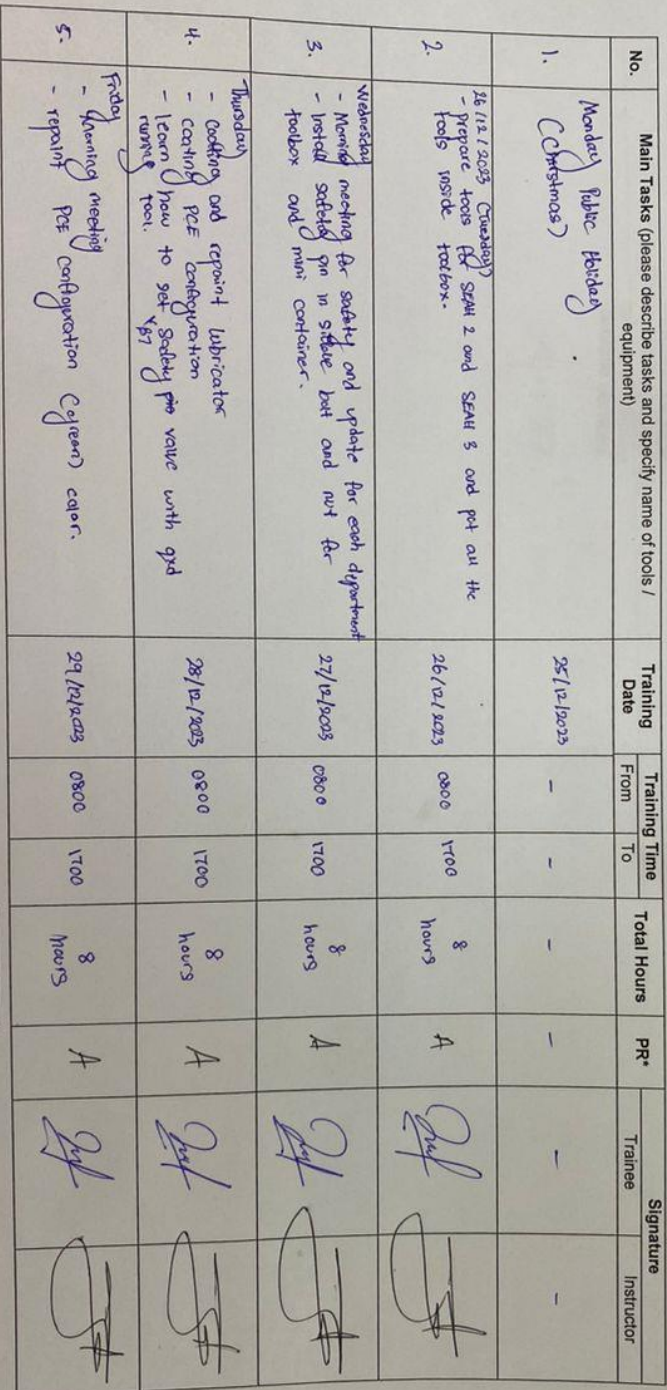 No. Main Tasks (please describe tasks and specify name of tools / equipment) Training Date Training Time From To Total Hours PR* Signature Trainee Instructor
1. Monday Public Holiday
(Christmas)
25/12/2023 - - - - - -
2. 26/12/2023 (Tuesday)
- prepare tools for SEAH 2 and SEAH 3 and put all the
tools inside toolbox.
26/12/2023 0800 1700 8 hours A
3. Wednesday
- Morning meeting for safety and update for each department
- Install safety pin in bolt and nut for
toolbox and mini container.
27/12/2023 0800 1700 8 hours A
4. Thursday
- coating and repaint lubricator
- coating PCE configuration
- learn how to set safety valve with qxd
running tool.
28/12/2023 0800 1700 8 hours A
5. Friday
- Morning meeting
- repaint PCE configuration (green) color.
29/12/2023 0800 1700 8 hours A